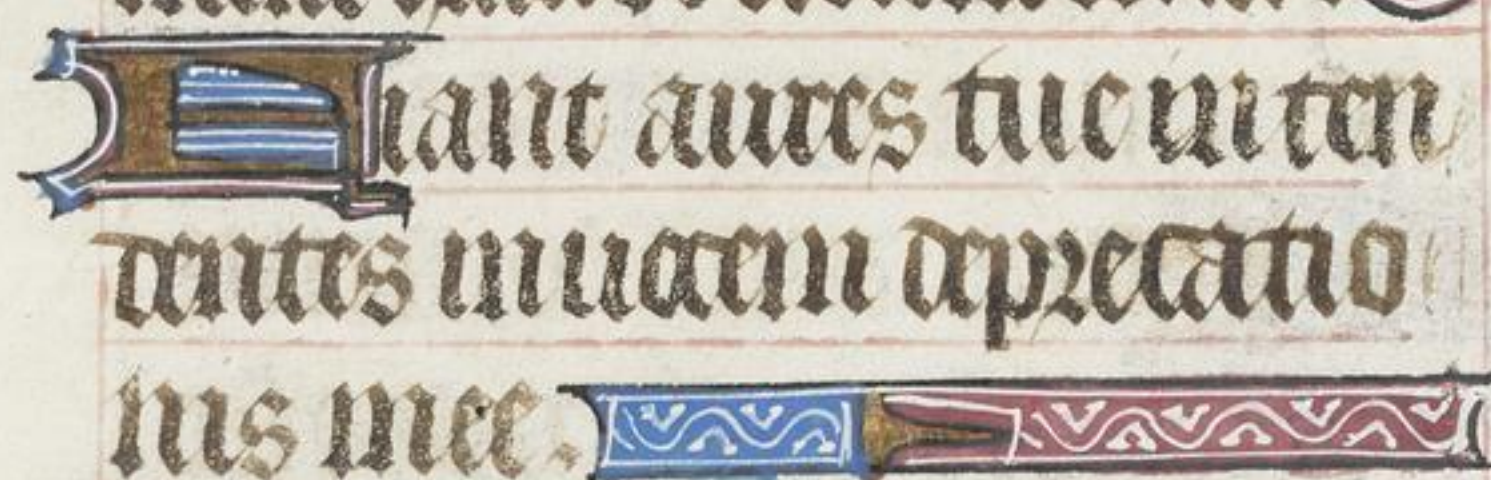 Fiant aures tue inten
dentes in uocem deprecatio
nis mee.